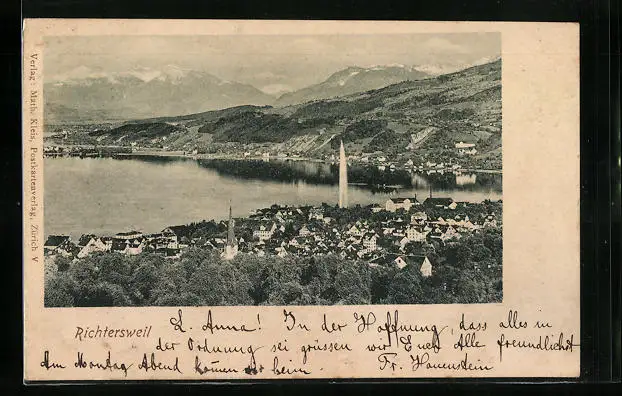 Verlag: Math. Kleis, Postkartenverlag, Zürich V
Richtersweil
L. Anna! In der Hoffnung, dass alles in
der Ordnung sei grüssen wir Euch Alle freundlichst
Am Montag Abend kommen wir heim. Fr. Hauenstein